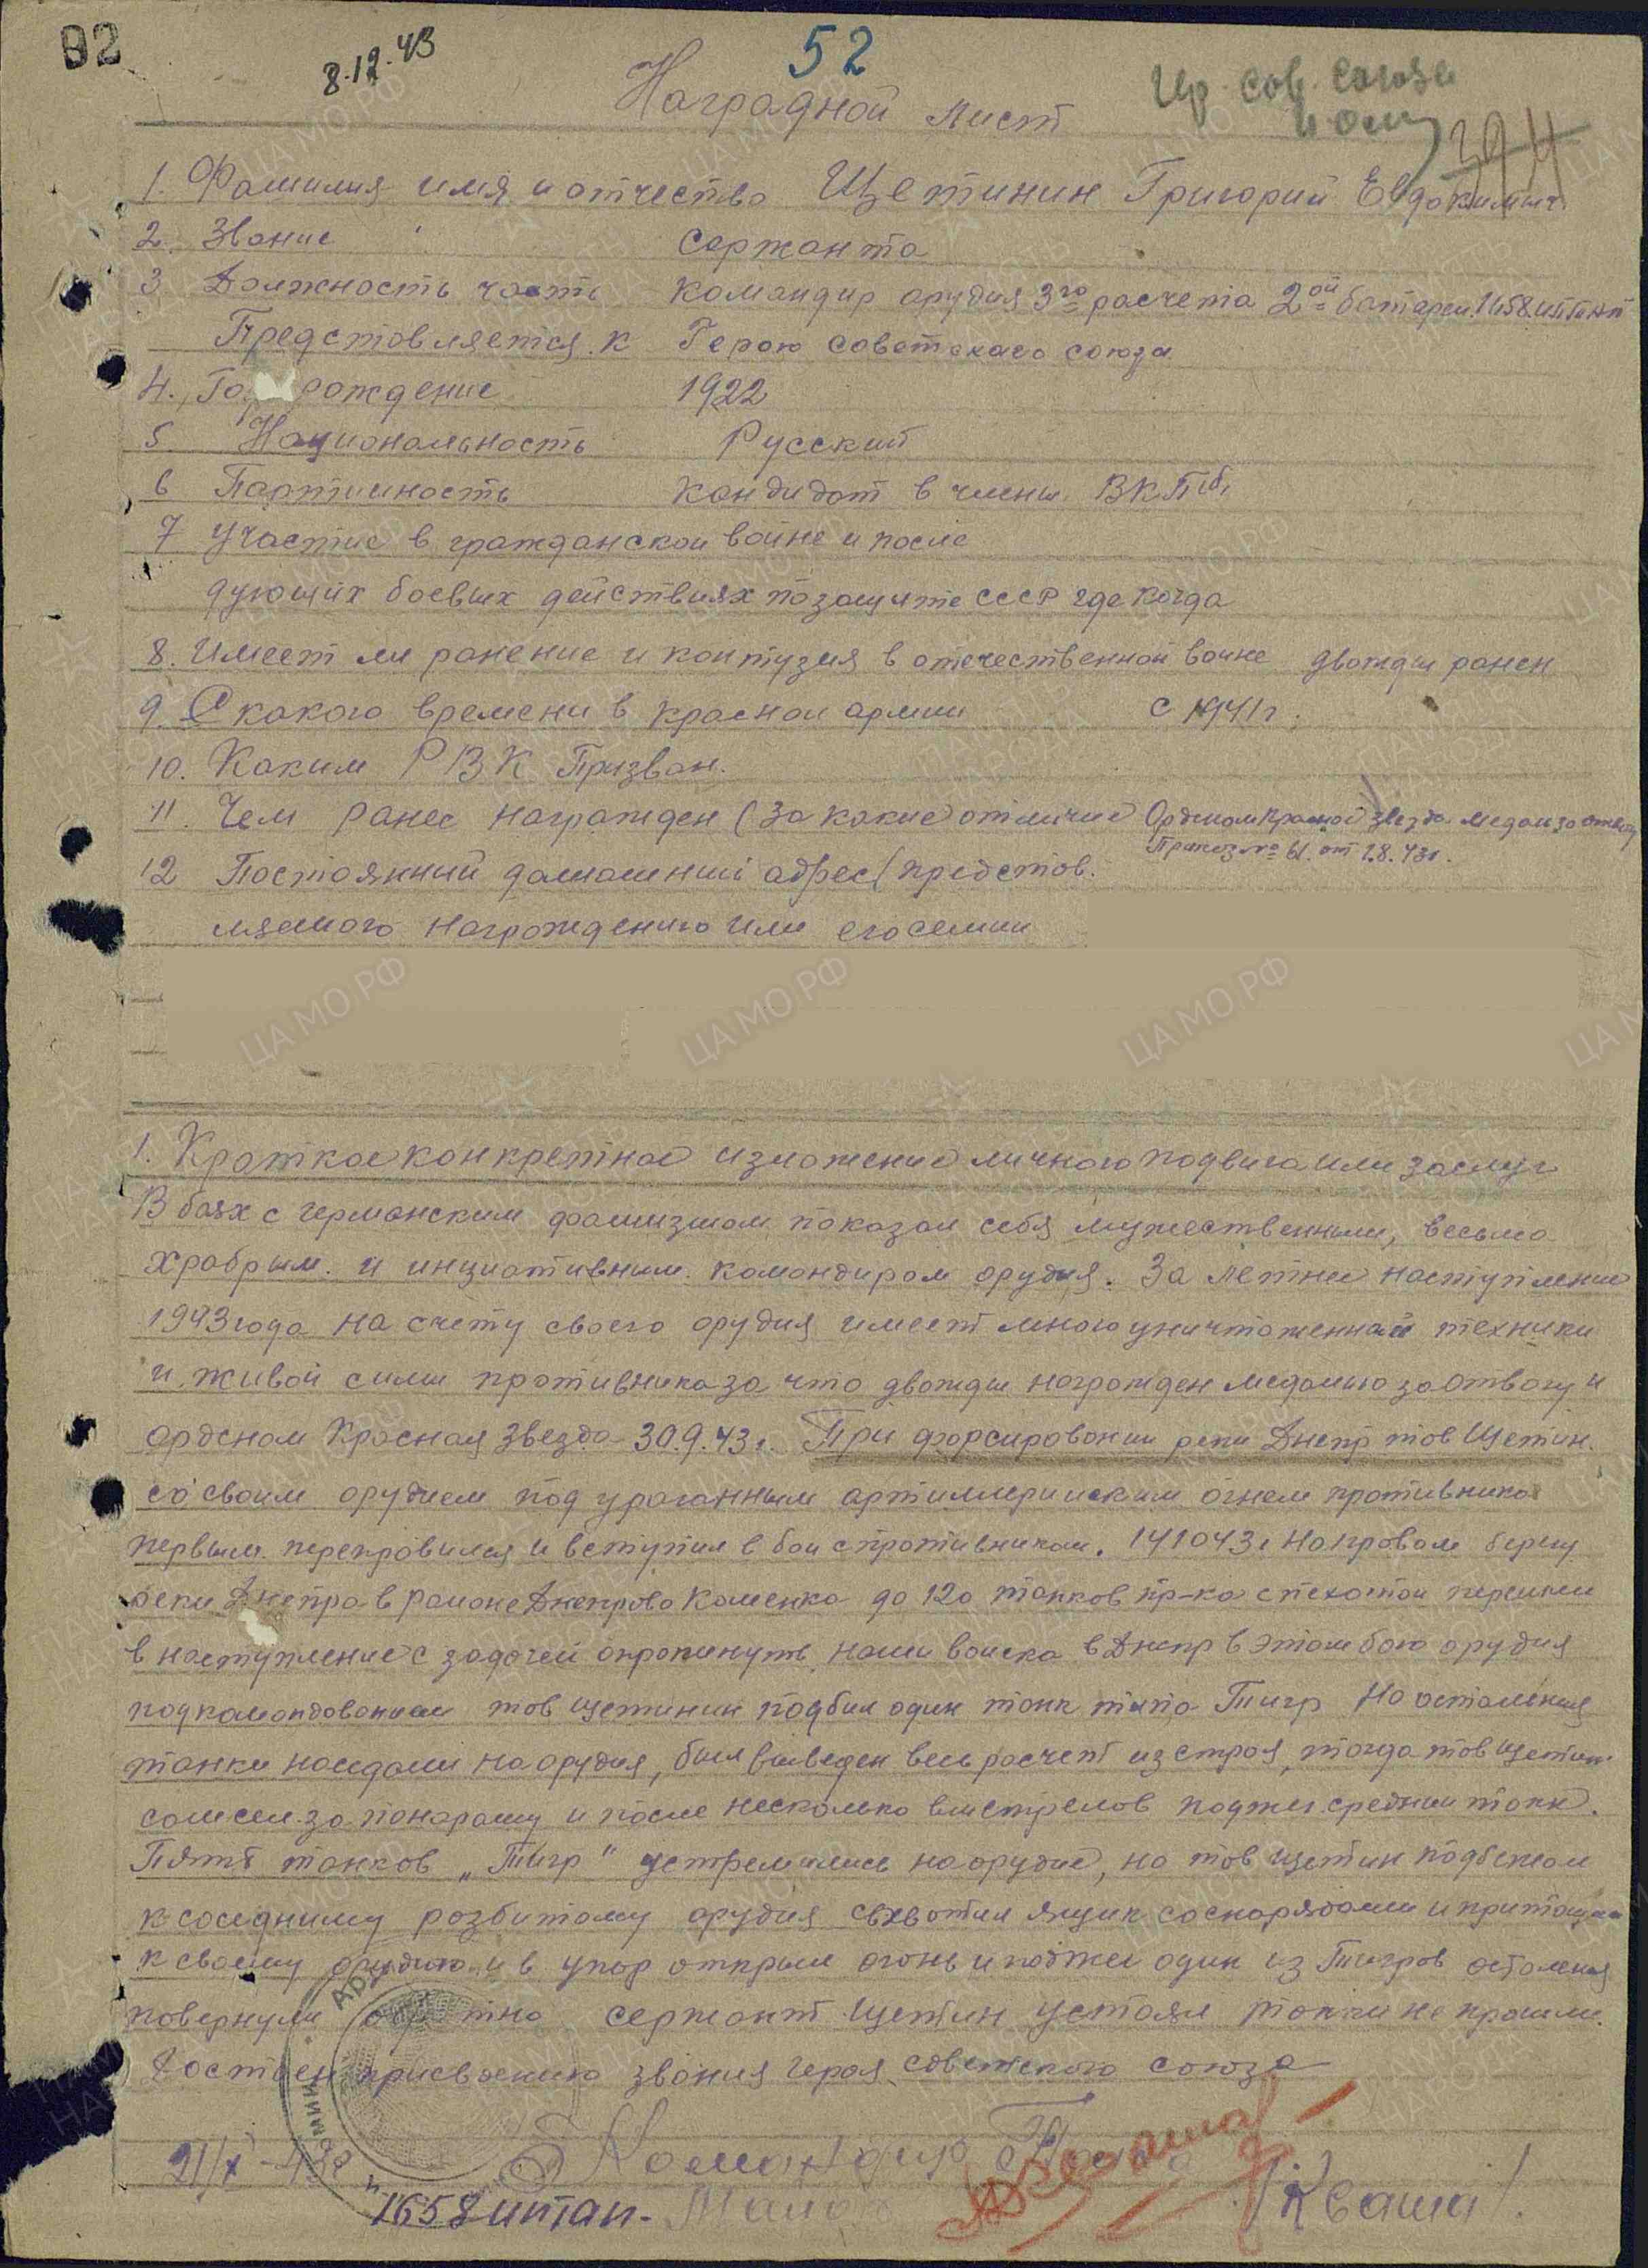 92
8.12.43
52
Наградной лист
Гер. Сов. Союза
394
1. Фамилия имя и отчество Щетинин Григорий Евдокимич
2. Звание Сержанта
3 Должность часть Командир орудия 3го расчета 2ой батареи 1658
Предстовляется к Герою Советского союза
4. Го рождение 1922
5 Национальность Русский
6 Партииность Кандидат в члены ВКПб
7 Участие в гражданскои воине и после
дующих боевых действиях по защите СССР где когда
8. Имеет ли ранение и контузия в отечественной воине дважды ранен
9. С какого времени в краснои армии с 1941г.
10. Каким РВК Призван.
11. Чем ранее награжден (за какие отличие Орденом Красной звезда медаль за отвагу
Приказ № от 1.8.43г.
12 Постоянный домашний адрес (представ.
ляемого награждению или его семии
1. Краткое конкретное изложение личного подвига или заслуг
В боях с германским фашизмом показал себя мужественным, весьма
храбрым и инциативным командиром орудия. За летнее наступление
1943 года на счету своего орудия имеет много уничтоженной техники
и живой силы противника за что дважды награжден медалью за отвагу и
орденом Красная Звезда 30.9.43г. При форсировании реки Днепр тов Щетин.
со своим орудием под ураганным артиллерииским огнем противника
первым переправился и вступил в бои с противником. 141043г на правом берегу
реки Днепра в районе Днепрово Каменка до 120 танков пр-ка с пехотой перешли
в наступление с задачей опрокинуть наши воиска в Днепр в этом бою орудия
под командованием тов Щетинин подбил один танк типа Тигр Но остальния
танки наседали на орудия, был выведен весь расчет из строя, тогда тов щетин
сам сел за панораму и после несколько выстрелов поджег средний танк.
Пять танков „Тигр" устремились на орудие, но тов щетин подбежал
к соседниму розбитому орудия схвотил ящик со снарядами и притащил
к своему орудию и в упор открыл огонь и поджег один из Тигров остальния
повернули обратно сержант Щетин устоял танки не прошли.
Достоен присвоению звания героя советского союза
21/X-43г Командир
1658 иптап - Маиор /Кваша/.